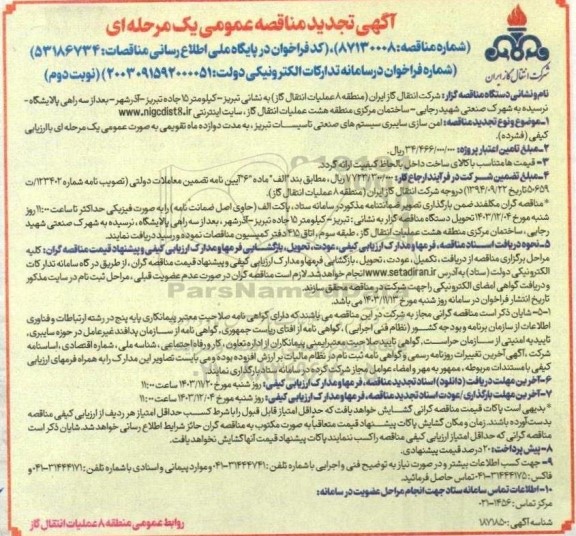 آگهی تجدید مناقصه عمومی یک مرحله ای
(شماره مناقصه: ۸۷۱۳۰۰۰۸)، (کد فراخوان در پایگاه ملی اطلاع رسانی مناقصات: ۵۳۱۸۶۷۳۴)
(شماره فراخوان در سامانه تدارکات الکترونیکی دولت: ۲۰۰۳۰۹۱۵۹۲۰۰۰۰۵۱) (نوبت دوم)
شرکت انتقال گاز ایران
نام و نشانی دستگاه مناقصه گزار: شرکت انتقال گاز ایران (منطقه ۸ عملیات انتقال گاز) به نشانی تبریز - کیلومتر ۱۵ جاده تبریز - آذرشهر - بعد از سه راهی پالایشگاه -
نرسیده به شهرک صنعتی شهید رجایی - ساختمان مرکزی منطقه هشت عملیات انتقال گاز، سایت اینترنتی www.nigcdist8.ir
۱- موضوع و نوع تجدید مناقصه: امن سازی سایبری سیستم های صنعتی تاسیسات تبریز، به مدت دوازده ماه تقویمی به صورت عمومی یک مرحله ای با ارزیابی
کیفی (فشرده).
۲- مبلغ تامین اعتبار پروژه: ۳۴/۴۶۶/۰۰۰/۰۰۰ ریال.
۳- قیمت ها متناسب با کالای ساخت داخل با لحاظ کیفیت ارائه گردد.
۴- مبلغ تضمین شرکت در فرآیند ارجاع کار: ۱/۷۲۳/۳۰۰/۰۰۰ ریال، مطابق بند "الف" ماده "۶" آیین نامه تضمین معاملات دولتی (تصویب نامه شماره ۱۲۳۴۰۲/ت
۵۰۶۵۹ تاریخ ۱۳۹۴/۰۹/۲۲) در وجه شرکت انتقال گاز ایران (منطقه ۸ عملیات انتقال گاز).
* مناقصه گران مکلفند ضمن بارگذاری تصویر ضمانتنامه مذکور در سامانه ستاد، پاکت الف (حاوی اصل ضمانت نامه) را به صورت فیزیکی حداکثر تا ساعت ۱۱:۰۰ روز
شنبه مورخ ۱۴۰۳/۱۲/۰۴ تحویل دستگاه مناقصه گزار به نشانی: تبریز - کیلومتر ۱۵ جاده تبریز - آذرشهر، بعد از سه راهی پالایشگاه، نرسیده به شهرک صنعتی شهید
رجایی، ساختمان مرکزی منطقه هشت عملیات انتقال گاز، طبقه سوم، اتاق ۴۱۵ دفتر کمیسیون مناقصات نموده و رسید دریافت نمایند.
۵- نحوه دریافت اسناد مناقصه، فرمها و مدارک ارزیابی کیفی، عودت، تحویل، بازگشایی فرمها و مدارک ارزیابی کیفی و پیشنهاد قیمت مناقصه گران: کلیه
مراحل برگزاری مناقصه از دریافت، تکمیل، عودت، تحویل، بازگشایی فرمها و مدارک ارزیابی کیفی و پیشنهاد قیمت مناقصه گران، از طریق درگاه سامانه تدارکات
الکترونیکی دولت (ستاد) به آدرس www.setadiran.ir انجام خواهد شد. لازم است مناقصه گران در صورت عدم عضویت قبلی، مراحل ثبت نام در سایت مذکور
و دریافت گواهی امضای الکترونیکی را جهت شرکت در مناقصه محقق سازند.
تاریخ انتشار فراخوان در سامانه روز شنبه مورخ ۱۴۰۳/۱۱/۱۳ می باشد.
۵-۱- شایان ذکر است مناقصه گرانی مجاز به شرکت در این مناقصه می باشند که دارای گواهی نامه صلاحیت معتبر پیمانکاری پایه پنج در رشته ارتباطات و فناوری
اطلاعات از سازمان برنامه و بودجه کشور (نظام فنی اجرایی)، گواهی نامه از افتای ریاست جمهوری، گواهی نامه از سازمان پدافند غیرعامل در حوزه سایبری،
تاییدیه امنیتی از سازمان حراست، گواهی تایید صلاحیت معتبر ایمنی پیمانکاران از اداره تعاون، کار و رفاه اجتماعی، شناسه ملی، شماره اقتصادی، اساسنامه
شرکت، آگهی آخرین تغییرات روزنامه رسمی و گواهی نامه ثبت نام در نظام مالیات بر ارزش افزوده بوده و می بایست تصاویر این مدارک را به همراه فرمهای ارزیابی
کیفی با مستندات مربوطه، ممهور به مهر و امضاء عوامل مجاز شرکت کرده در سامانه ستاد بارگذاری نمایند.
۶- آخرین مهلت دریافت (دانلود) اسناد تجدید مناقصه، فرمها و مدارک ارزیابی کیفی: روز شنبه مورخ ۱۴۰۳/۱۱/۲۰ ساعت ۱۱:۰۰
۷- آخرین مهلت بارگذاری/عودت اسناد تجدید مناقصه، فرمها و مدارک ارزیابی کیفی: روز شنبه مورخ ۱۴۰۳/۱۲/۰۴ ساعت ۱۱:۰۰
* بدیهی است پاکات قیمت مناقصه گرانی گشایش خواهد یافت که حداقل امتیاز قابل قبول را با شرط کسب حداقل امتیاز هر ردیف از ارزیابی کیفی مناقصه
بدست آورده باشند. زمان و مکان گشایش پاکات پیشنهاد قیمت متعاقباً به صورت مکتوب به مناقصه گران حائز شرایط اطلاع رسانی خواهد شد. شایان ذکر است
مناقصه گرانی که حداقل امتیاز ارزیابی کیفی مناقصه را کسب ننمایند پاکات پیشنهاد قیمت آنها گشایش نخواهد یافت.
۸- پیش پرداخت: ۲۰ درصد قیمت پیشنهادی.
۹- جهت کسب اطلاعات بیشتر و در صورت نیاز به توضیح فنی و اجرایی با شماره تلفن: ۳۱۴۴۴۷۴۱-۰۴۱ و موارد پیمانی و اسنادی با شماره تلفن: ۳۱۴۴۴۱۷۱-۰۴۱ و
فاکس: ۳۱۴۴۴۱۷۵-۰۴۱ تماس حاصل فرمایید.
۱۰- اطلاعات تماس سامانه ستاد جهت انجام مراحل عضویت در سامانه:
مرکز تماس: ۱۴۵۶-۰۲۱
شناسه آگهی: ۱۸۷۱۸۵۰
روابط عمومی منطقه ۸ عملیات انتقال گاز